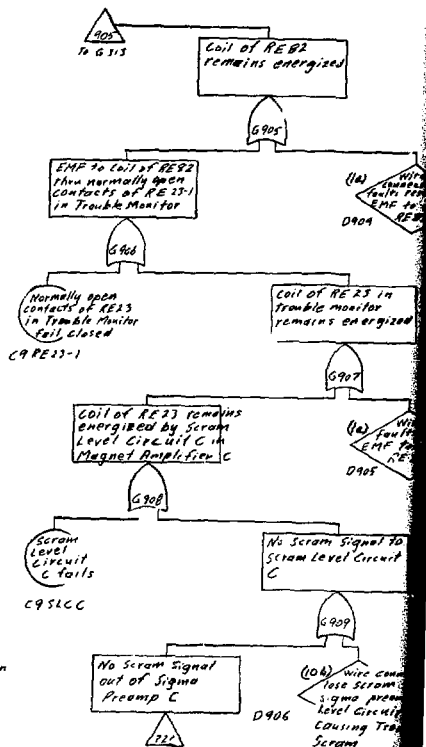 905
To G313
Coil of RE82
remains energized
G905
EMF to Coil of RE82
thru normally open
contacts of RE 23-1
in Trouble Monitor
(1a) Wire
faults
EMF to
D904
G906
Normally open
contacts of RE23
in Trouble Monitor
fail closed
C9 RE23-1
Coil of RE 23 in
trouble monitor
remains energized
G907
Coil of RE23 remains
energized by Scram
Level Circuit C in
Magnet Amplifier C
(1a)
faults
EMF to
D905
G908
Scram
Level
Circuit
C fails
C9 SLCC
No Scram Signal to
Scram Level Circuit
C
G909
No Scram Signal
out of Sigma
Preamp C
(10b) wire
lose Scram
sigma
Level Circuit
Causing
Scram
D906